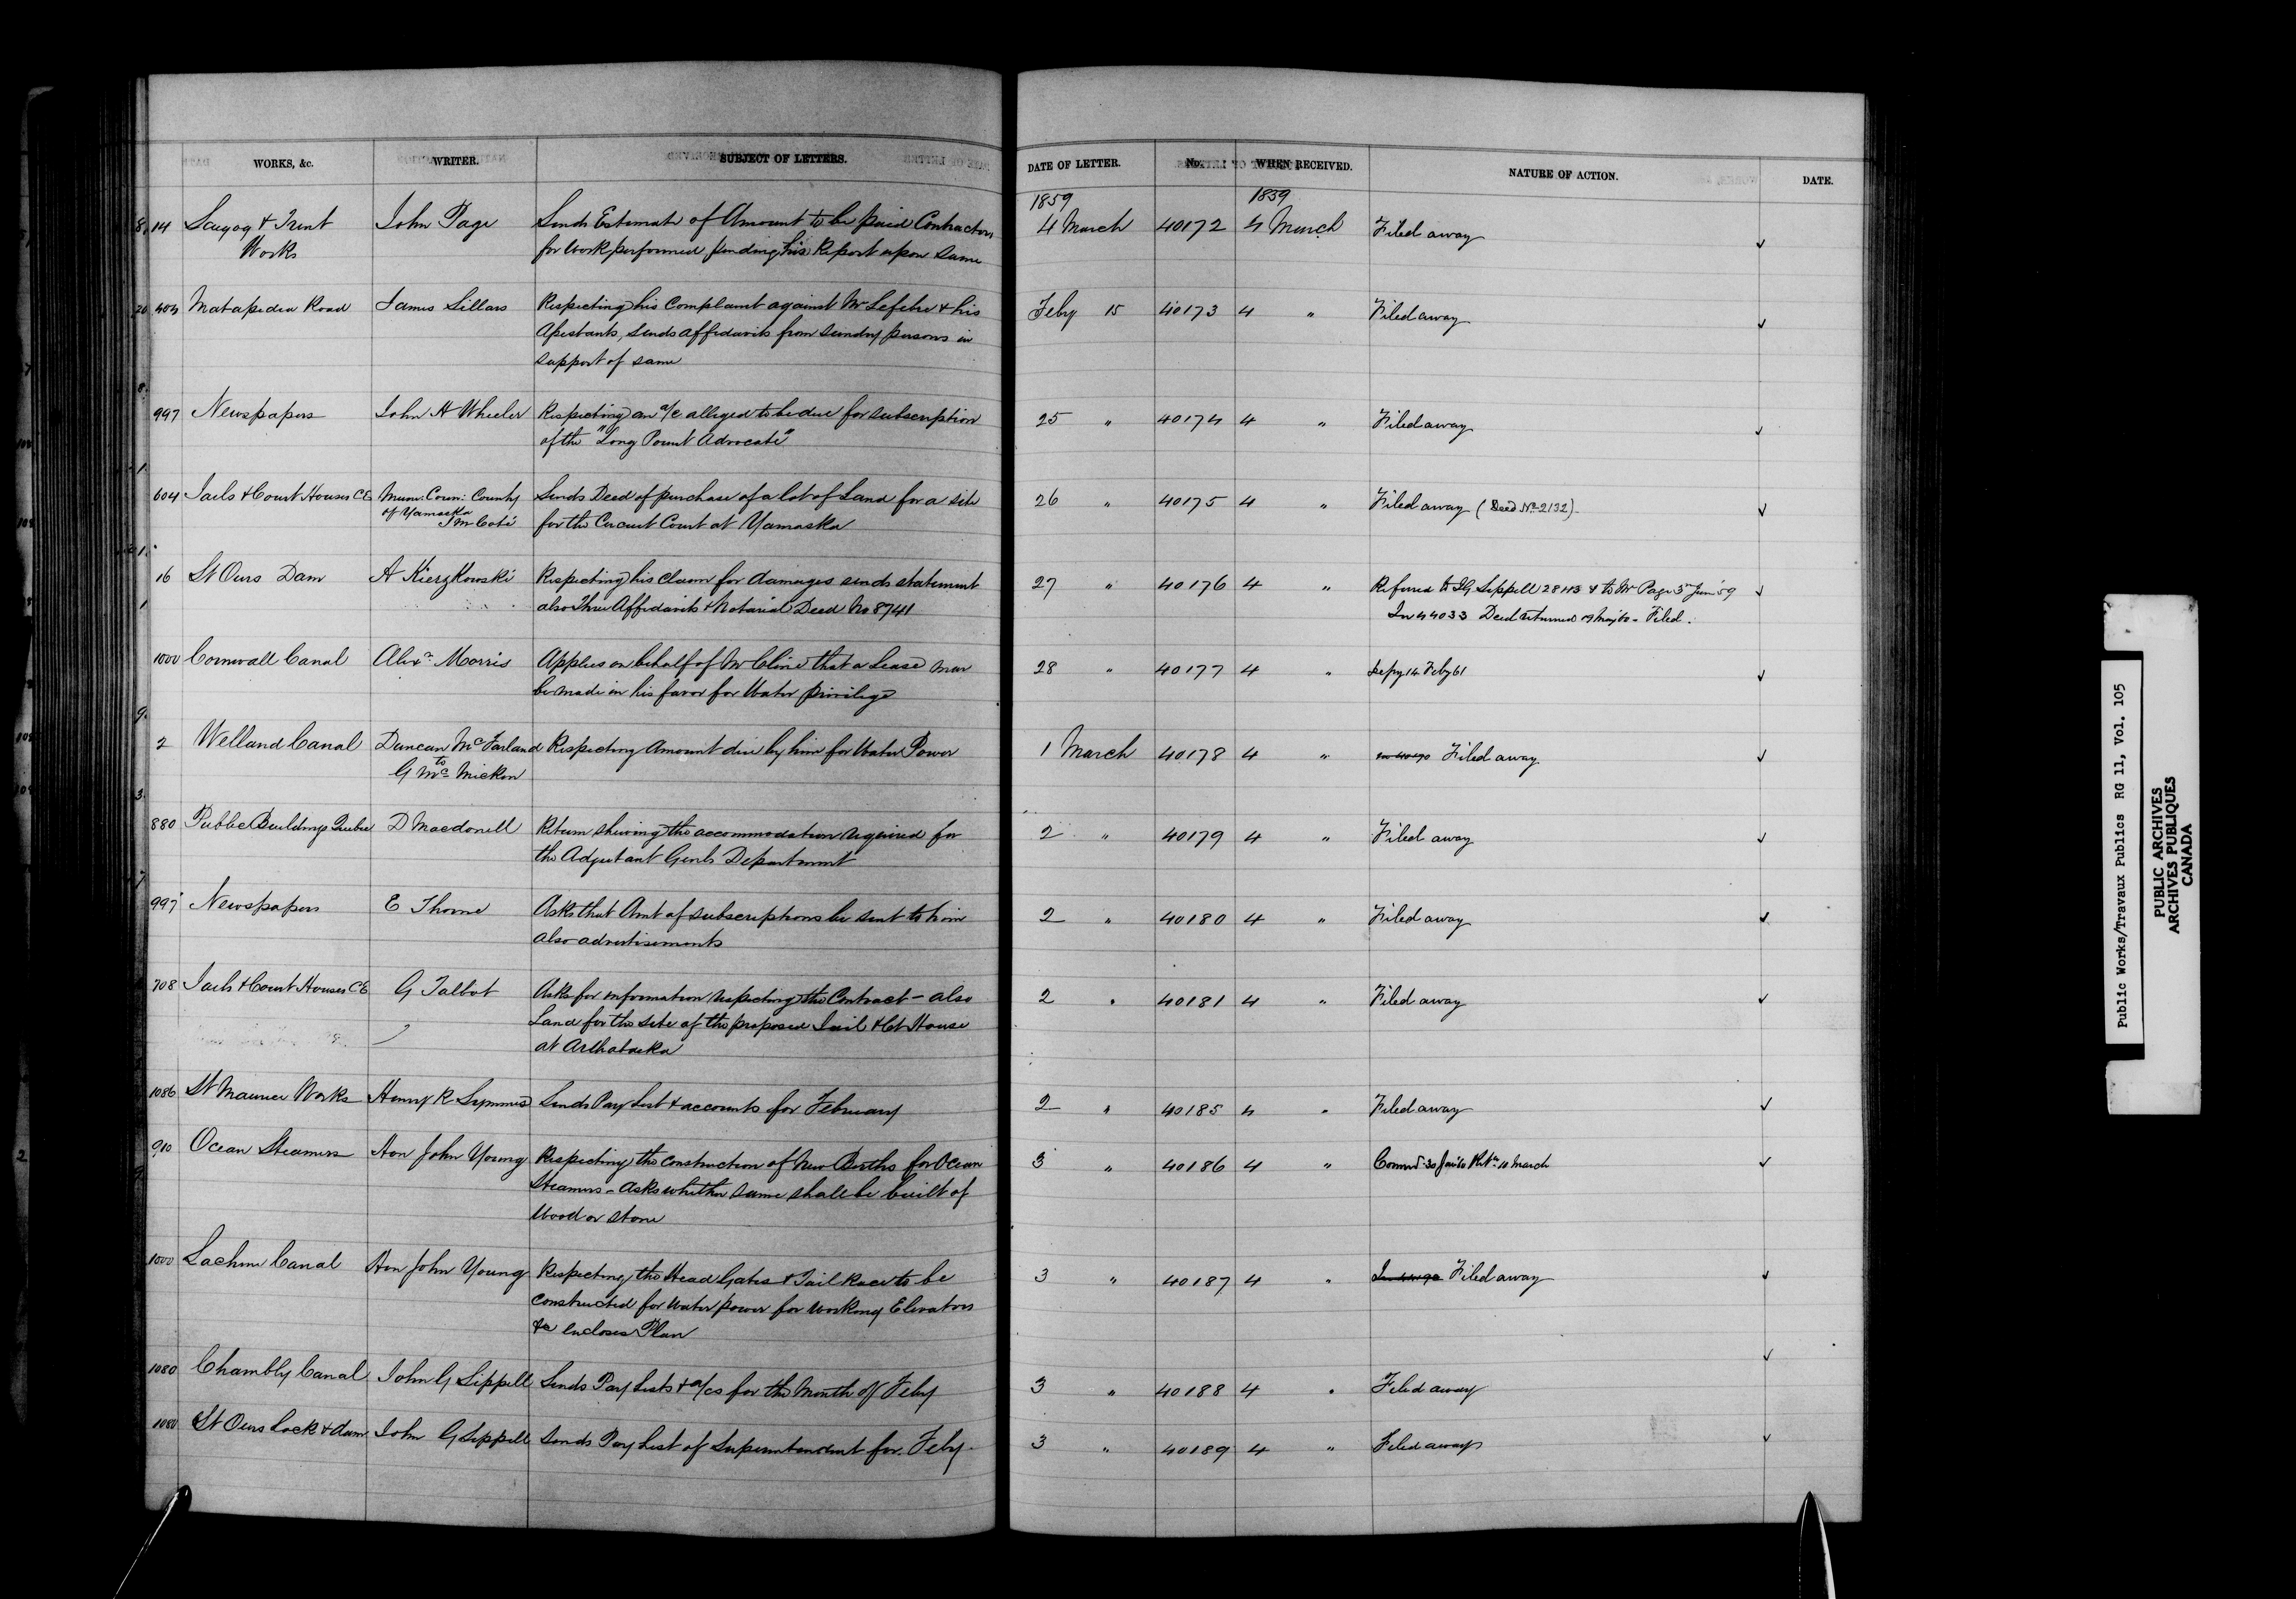 WORKS, &c. WRITER. SUBJECT OF LETTERS. DATE OF LETTER. No. WHEN RECEIVED. NATURE OF ACTION. DATE.
1859 1859
14 Scugog & Trent John Page Sends Estimate of Amount to be paid Contractors 4 March 40172 4 March Filed away
Works for Work performed, pending his Report upon same
Matapedia Road James Sillars Respecting his Complaint against Mr Lefebre & his Feby 15 40173 4 " Filed away
Assistants, sends affidavits from sundry persons in
support of same
997 Newspapers John H Wheeler Respecting an a/c alleged to be due for subscription 25 " 40174 4 " Filed away
of the "Long Point Advocate"
604 Jails & Court Houses CE Muni: Coun: County Sends Deed of purchase of a lot of Land for a site 26 " 40175 4 " Filed away (Deed No 2132)
of Yamaska for the Circuit Court at Yamaska
16 St Ours Dam A Kierzkowski Respecting his Claim for damages sends statement 27 " 40176 4 " Referred to JG Sippell & to Mr Page
also Three Affidavits & Notarial Deed No 8741 In 44033 Deed returned Filed.
1000 Cornwall Canal Alexr Morris Applies on behalf of Mr Cline that a Lease may 28 " 40177 4 " Feby 61
be made in his favor for Water privilege
2 Welland Canal Duncan McFarland Respecting Amount due by him for Water Power 1 March 40178 4 " Filed away
to
G McMicken
880 Public Buildings Quebec D Macdonell Return shewing the accommodation required for 2 " 40179 4 " Filed away
the Adjutant Genls Department
997 Newspapers E Thorne Asks that Amt of subscriptions be sent to him 2 " 40180 4 " Filed away
also advertisements
708 Jails & Court Houses CE G Talbot Asks for information respecting the Contract - also 2 " 40181 4 " Filed away
Land for the site of the proposed Jail & Ct House
at Arthabaska
1086 St Maurice Works Henry R Symmes Sends Pay List & accounts for February 2 " 40185 4 " Filed away
910 Ocean Steamers Hon John Young Respecting the construction of New Berths for Ocean 3 " 40186 4 " March
Steamers - asks whether same shall be built of
Wood or stone
1000 Lachine Canal Hon John Young Respecting the Head Gates & Tail Race to be 3 " 40187 4 " Filed away
constructed for Water power for working Elevators
&c encloses Plan
1080 Chambly Canal John G Sippell Sends Pay Lists & a/cs for the Month of Feby 3 " 40188 4 " Filed away
1080 St Ours Lock & Dam John G Sippell Sends Pay List of Superintendent for Feby. 3 " 40189 4 " Filed away
Public Works/Travaux Publics RG 11, Vol. 105
PUBLIC ARCHIVES
ARCHIVES PUBLIQUES
CANADA